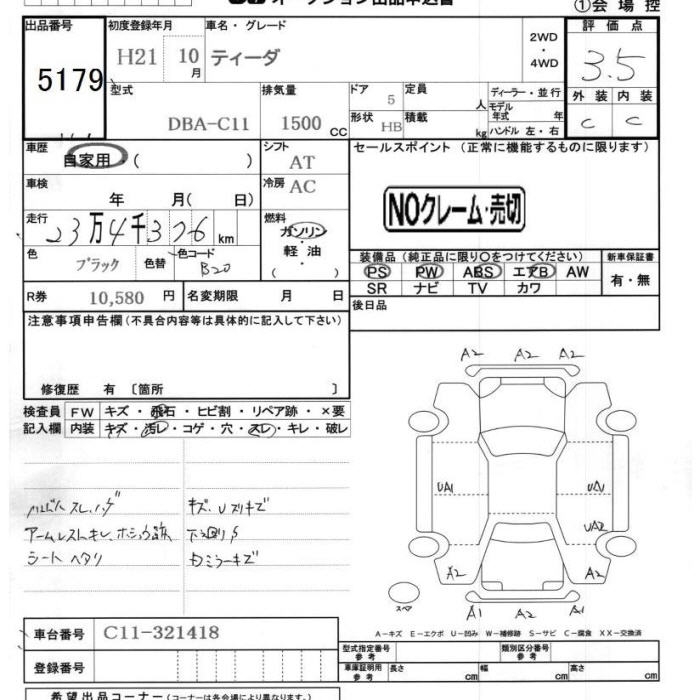 オークション出品申込書
①会場控
出品番号 初度登録年月 車名・グレード 2WD・4WD 評価点
5179 H21 10月 ティーダ 3.5
型式 排気量 ドア 5 定員 人 ディーラー・並行 外装 内装
DBA-C11 1500CC 形状 HB 積載 kg モデル年式 年 ハンドル 左・右 C C
車歴 自家用・( ) シフト AT セールスポイント (正常に機能するものに限ります)
車検 年 月(日) 冷房 AC
NOクレーム・売切
走行 23万4千376km 燃料 ガソリン・軽油( )
色 ブラック 色替 色コード B20
装備品(純正品に限り○をつけてください) 新車保証書
PS PW ABS エアB AW 有・無
SR ナビ TV カワ
R券 10,580円 名変期限 月 日
後日品
注意事項申告欄(不具合内容等は具体的に記入して下さい)
修復歴 有 〔箇所 〕
検査員 FW キズ・飛石・ヒビ割・リペア跡・×要
記入欄 内装 キズ・汚レ・コゲ・穴・スレ・キレ・破レ
A2 A2 A2
UA1 UA1
UA2
スレ,ハゲ キズ、Uスリキズ
アームレストキレ、ホショウ跡 下廻りS
シートヘタリ ミラーキズ
A2 A2
スペア A1 A2 A1
車台番号 C11-321418
A-キズ E-エクボ U-凹み W-補修跡 S-サビ C-腐食 XX-交換済
登録番号
型式指定番号参考 類別区分番号参考
車庫証明用参考 長さ cm 幅 cm 高さ cm
希望出品コーナー(コーナーは各会場により異なります。)